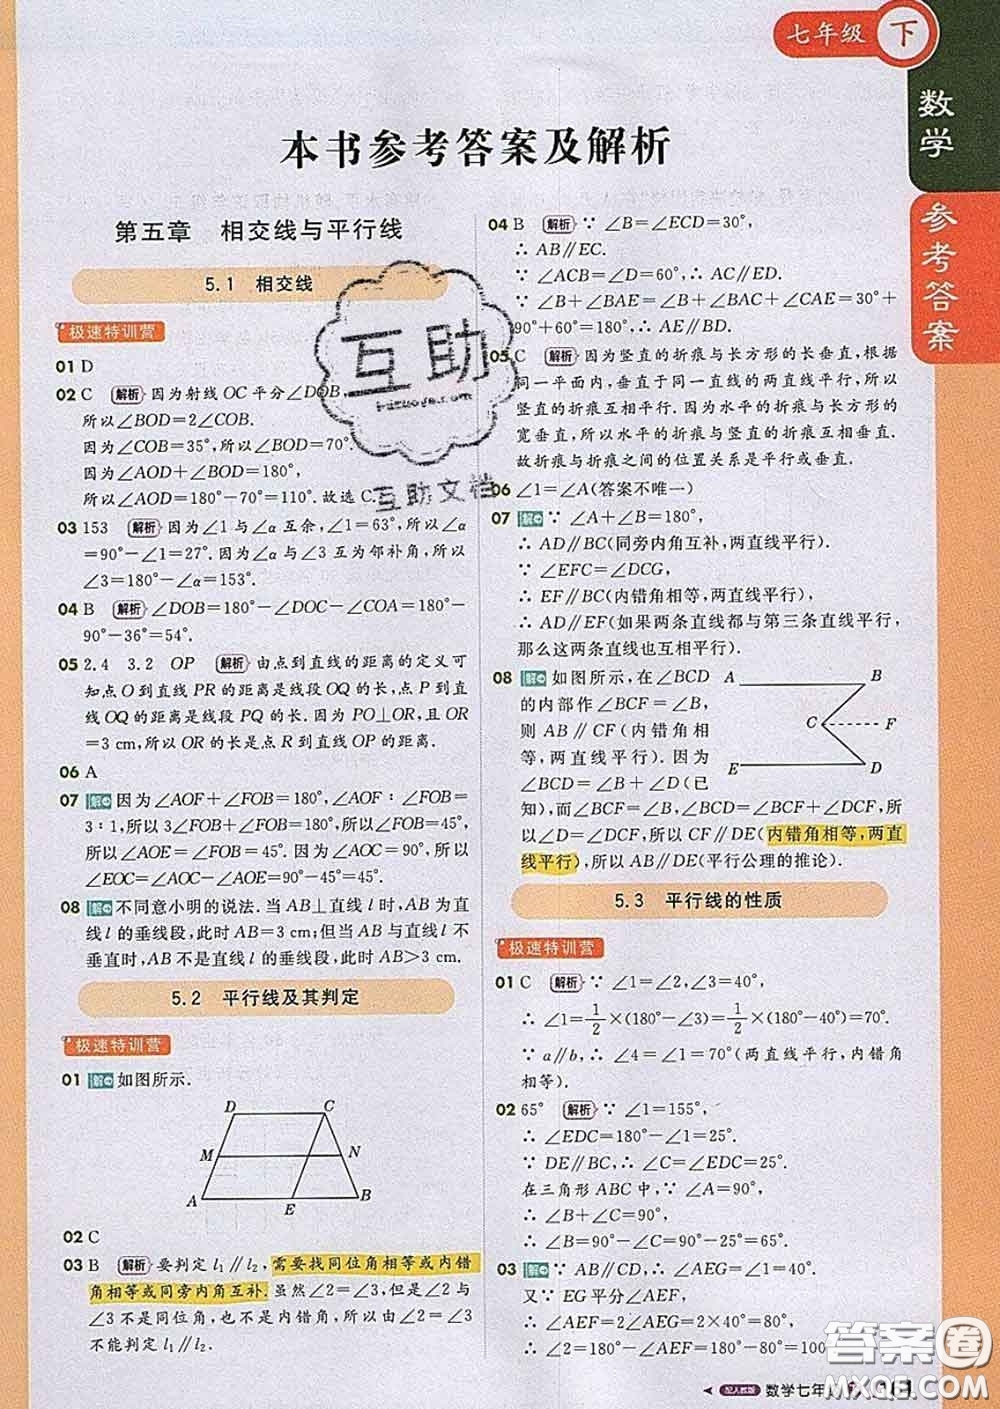 七年级 下
数学
参考答案
本书参考答案及解析
第五章 相交线与平行线
5.1 相交线
极速特训营
01 D
02 C 解析 因为射线OC平分∠DOB,
所以∠BOD=2∠COB.
因为∠COB=35°,所以∠BOD=70°.
因为∠AOD+∠BOD=180°,
所以∠AOD=180°-70°=110°.故选C.
03 153 解析 因为∠1与∠α互余,∠1=63°,所以∠α
=90°-∠1=27°.因为∠α与∠3互为邻补角,所以
∠3=180°-∠α=153°.
04 B 解析 ∠DOB=180°-∠DOC-∠COA=180°-
90°-36°=54°.
05 2.4 3.2 OP 解析 由点到直线的距离的定义可
知点O到直线PR的距离是线段OQ的长,点P到直
线OQ的距离是线段PQ的长.因为PO⊥OR,且OR
=3 cm,所以OR的长是点R到直线OP的距离.
06 A
07 解 因为∠AOF+∠FOB=180°,∠AOF∶∠FOB=
3∶1,所以3∠FOB+∠FOB=180°,所以∠FOB=45°,
所以∠AOE=∠FOB=45°.因为∠AOC=90°,所以
∠EOC=∠AOC-∠AOE=90°-45°=45°.
08 解 不同意小明的说法.当AB⊥直线l时,AB为直
线l的垂线段,此时AB=3 cm;但当AB与直线l不
垂直时,AB不是直线l的垂线段,此时AB>3 cm.
5.2 平行线及其判定
极速特训营
01 解 如图所示.
D C
M N
A E B
02 C
03 B 解析 要判定l₁∥l₂,需要找同位角相等或内错
角相等或同旁内角互补.虽然∠2=∠3,但是∠2与
∠3不是同位角,也不是内错角,所以由∠2=∠3
不能判定l₁∥l₂.
04 B 解析 ∵∠B=∠ECD=30°,
∴AB∥EC.
∵∠ACB=∠D=60°,∴AC∥ED.
∵∠B+∠BAE=∠B+∠BAC+∠CAE=30°+
90°+60°=180°,∴AE∥BD.
05 C 解析 因为竖直的折痕与长方形的长垂直,根据
同一平面内,垂直于同一直线的两直线平行,所以
竖直的折痕互相平行.因为水平的折痕与长方形的
宽垂直,所以水平的折痕与竖直的折痕互相垂直.
故折痕与折痕之间的位置关系是平行或垂直.
06 ∠1=∠A(答案不唯一)
07 解 ∵∠A+∠B=180°,
∴AD∥BC(同旁内角互补,两直线平行).
∵∠EFC=∠DCG,
∴EF∥BC(内错角相等,两直线平行).
∴AD∥EF(如果两条直线都与第三条直线平行,
那么这两条直线也互相平行).
08 解 如图所示,在∠BCD
的内部作∠BCF=∠B,
则AB∥CF(内错角相
等,两直线平行).因为
∠BCD=∠B+∠D(已
知),而∠BCF=∠B,∠BCD=∠BCF+∠DCF,所
以∠D=∠DCF,所以CF∥DE(内错角相等,两直
线平行),所以AB∥DE(平行公理的推论).
A B
C F
E D
5.3 平行线的性质
极速特训营
01 C 解析 ∵∠1=∠2,∠3=40°,
∴∠1=1/2×(180°-∠3)=1/2×(180°-40°)=70°.
∵a∥b,∴∠4=∠1=70°(两直线平行,内错角
相等).
02 65° 解析 ∵∠1=155°,
∴∠EDC=180°-∠1=25°.
∵DE∥BC,∴∠C=∠EDC=25°.
在三角形ABC中,∵∠A=90°,
∴∠B+∠C=90°,
∴∠B=90°-∠C=90°-25°=65°.
03 解 ∵AB∥CD,∴∠AEG=∠1=40°.
又∵EG平分∠AEF,
∴∠AEF=2∠AEG=2×40°=80°,
∴∠2=180°-∠AEF=180°-80°=100
配人教版 数学七年
互助
互助文档
答案圈
MXQE.COM